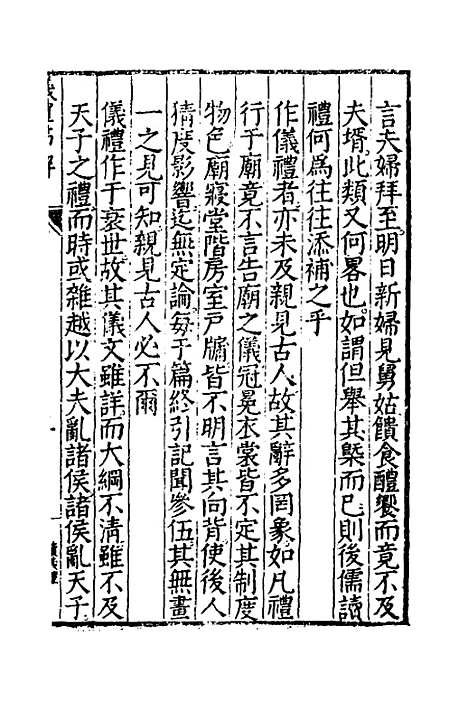 言夫婦拜至明日新婦見舅姑饋食醴饗而竟不及
夫壻此類又何畧也如謂但舉其槩而已則後儒讀
禮何為往往添補之乎
作儀禮者亦未及親見古人故其辭多罔象如凡禮
行于廟竟不言告廟之儀冠冕衣裳皆不定其制度
物色廟寢堂階房室戸牖皆不明言其向背使後人
猜度影響迄無定論每于篇終引記聞參伍其無畫
一之見可知親見古人必不爾
儀禮作于衰世故其儀文雖詳而大綱不清雖不及
天子之禮而時或雜越以大夫亂諸侯諸侯亂天子